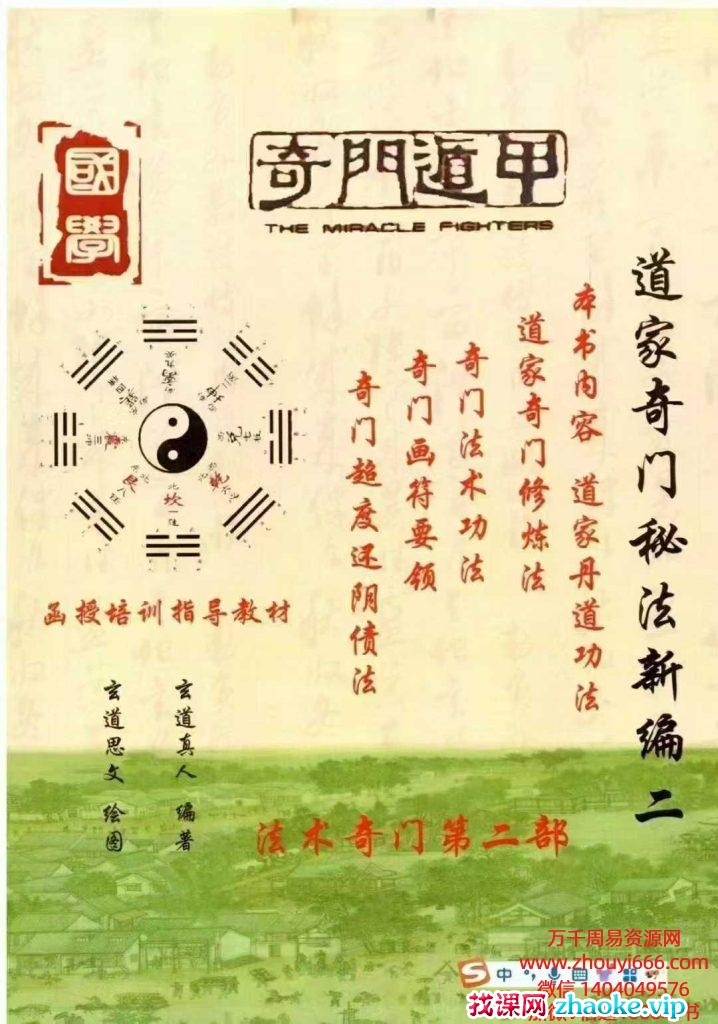 國學
奇門遁甲
THE MIRACLE FIGHTERS
道家奇门秘法新编 二
本书内容 道家丹道功法
道家奇门修炼法
奇门法术功法
奇门画符要领
奇门超度还阴债法
离九
震三
乾六
艮八任
北
坎一
函授培训指导教材
玄道真人 编著
玄道思文 绘图
法术奇门第二部
万千周易资源网
www.zhouyi666.com
中
微信 1404049576
找课网zhaoke.vip